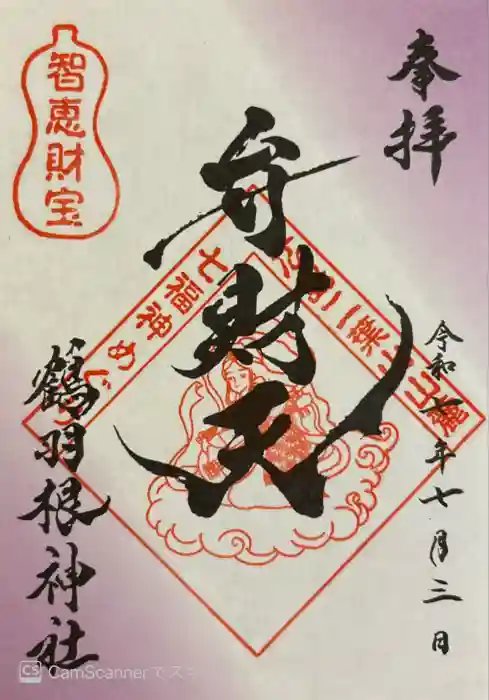 奉拝
智恵財宝
弁財天
七福神めぐ
二葉山山麓
令和七年七月三日
鶴羽根神社
CS CamScannerでス